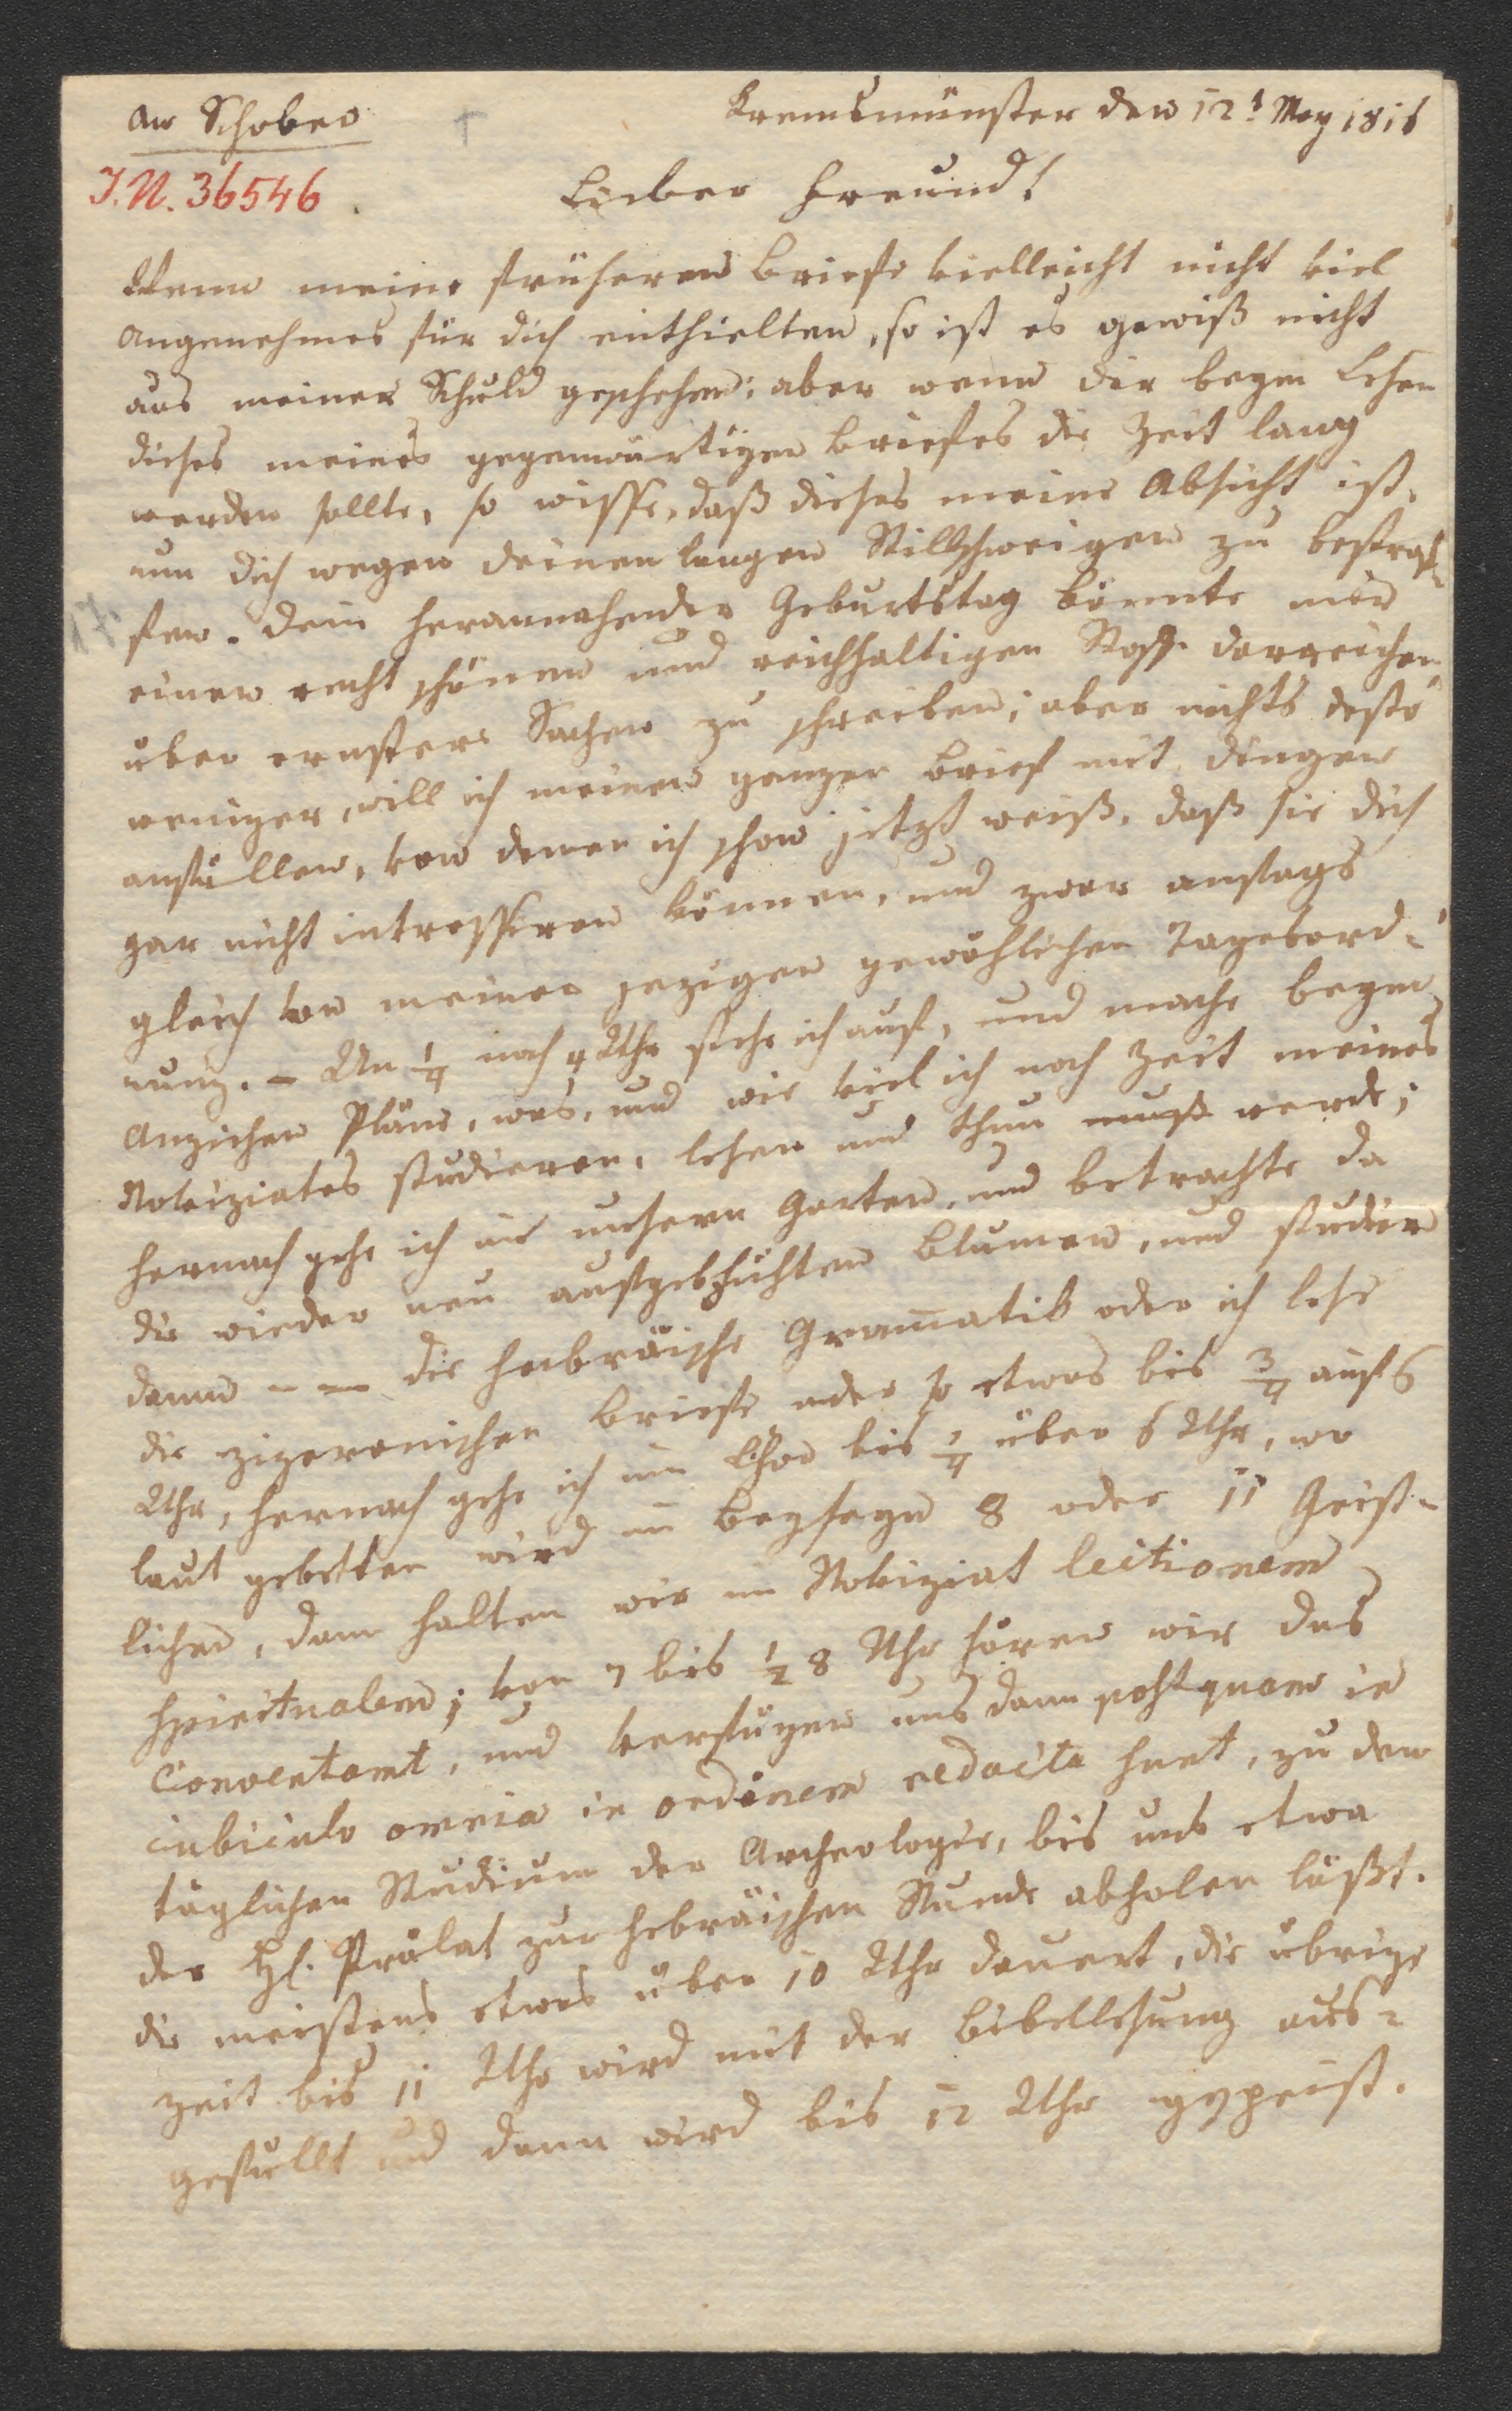 An Schober
Kremsmünster den 12t May 1816
J.N. 36546
Lieber Freund!
Wenn meine früheren Briefe vielleicht nicht viel
Angenehmes für dich enthielten, so ist es gewiß nicht
aus meiner Schuld geschehen; aber wenn dir beym Lesen
dieses meines gegenwärtigen Briefes die Zeit lang
werden sollte, so wisse, daß dieses meine Absicht ist,
um dich wegen deinen langen Stillschweigen zu bestraf-
fen. Dein herannahender Geburtstag könnte mir
einen recht schönen und reichhaltigen Stoff darreichen,
über ernstere Sachen zu schreiben; aber nichts desto
weniger, will ich meinen ganzen Brief mit Dingen
anfüllen, von denen ich schon jetzt weiß, daß sie dich
gar nicht intressiren können, und zwar anfags
gleich von meiner jezigen gewöhlichen Tagesord-
nung. – Um 1/4 nach 4 Uhr stehe ich auf, und mache beym
Anziehen Pläne, was, und wie viel ich noch Zeit meines
Noviziates studieren, lesen und thun muß werde;
hernach gehe ich in unsern Garten, und betrachte da
die wieder neu aufgeblühten Blumen, und studier
dann – – die hebräische Grammatik oder ich lese
die zizeronischen Briefe oder so etwas bis 3/4 auf 6
Uhr, hernach gehe ich in Chor bis 1/4 über 6 Uhr, wo
laut gebetten wird in Beyseyn 8 oder 11 Geist-
lichen, dann halten wir im Noviziat lectionem
spiritualem; von 7 bis 1/2 8 Uhr hören wir das
Conventamt, und verfügen uns dann postquam in
cubiculo omnia in ordinem redacta sunt, zu dem
täglichen Studium der Archeologie, bis uns etwa
der H. Prälat zur hebräischen Stunde abholen läßt.
die meistens etwas über 10 Uhr dauert, die übrige
Zeit bis 11 Uhr wird mit der Bibellesung aus-
gefüllt und dann wird bis 12 Uhr gespeist.